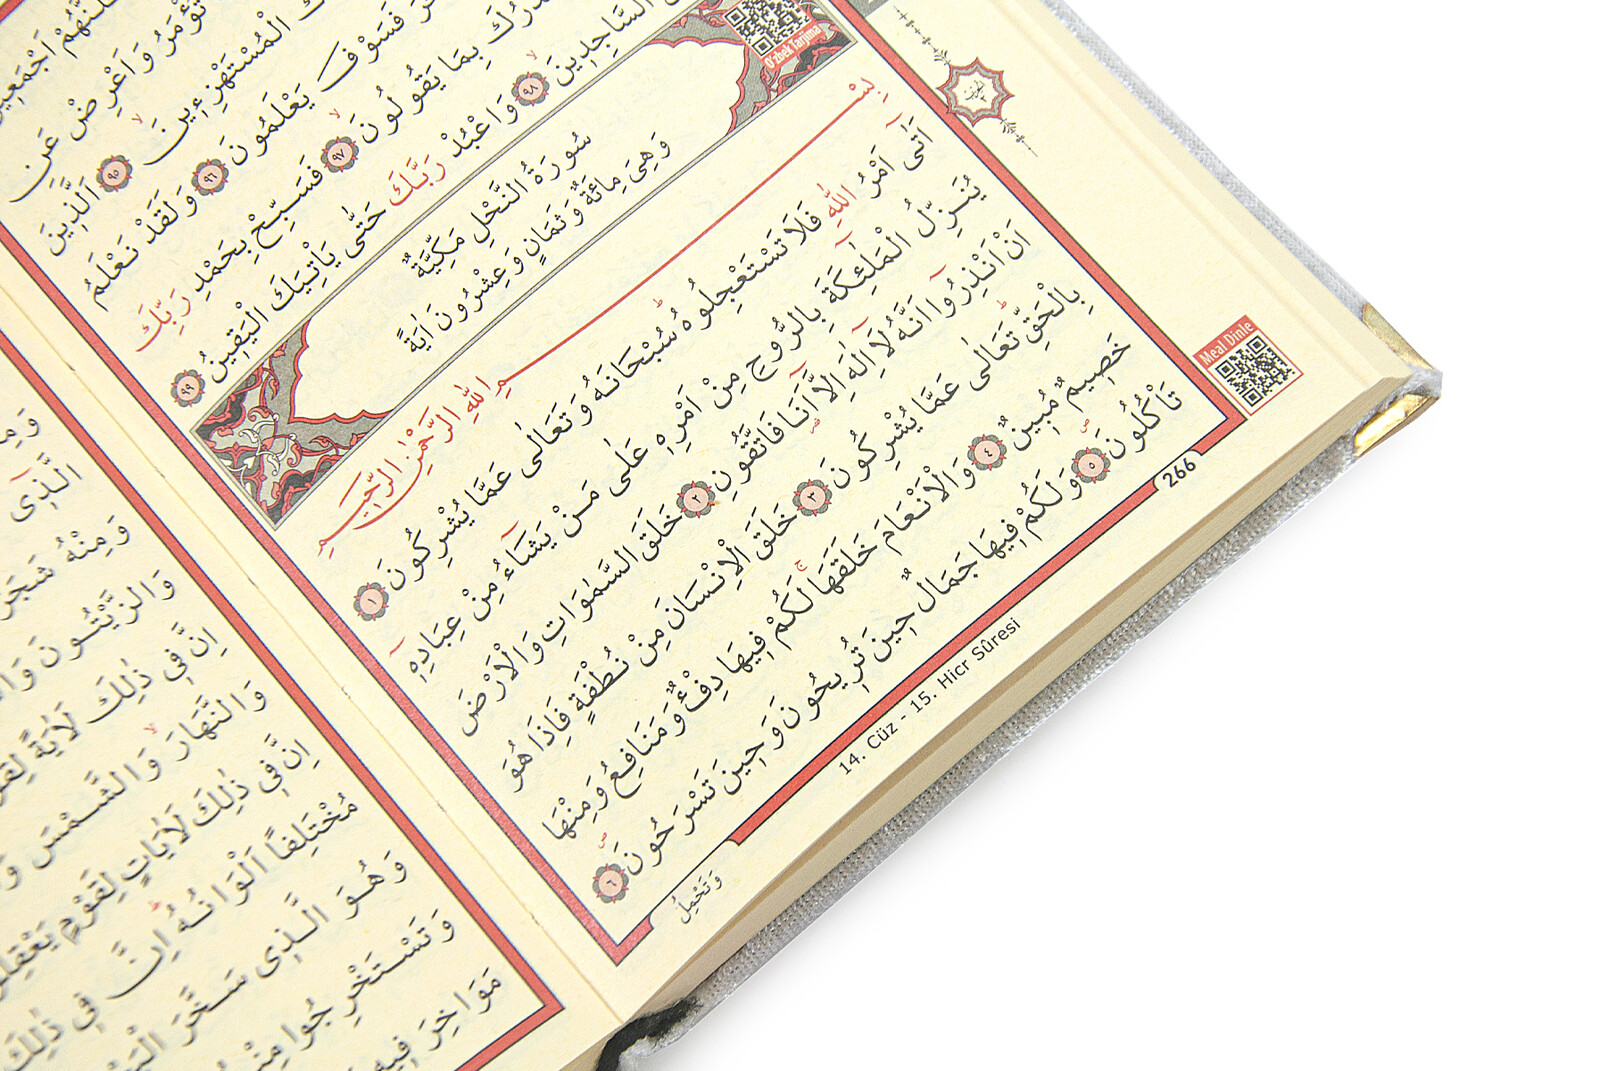 اَجْمَعٖينَ
تُؤْمَرُ وَاَعْرِضْ عَنِ
الْمُسْتَهْزِءٖينَ ﴿٩٥﴾ اَلَّذٖينَ
فَسَوْفَ يَعْلَمُونَ ﴿٩٦﴾ وَلَقَدْ نَعْلَمُ
صَدْرُكَ بِمَا يَقُولُونَ ﴿٩٧﴾ فَسَبِّحْ بِحَمْدِ رَبِّكَ
السَّاجِدٖينَ ﴿٩٨﴾ وَاعْبُدْ رَبَّكَ حَتّٰى يَأْتِيَكَ الْيَقٖينُ ﴿٩٩﴾
O'zbek Tarjima
سُورَةُ النَّحْلِ مَكِّيَّةٌ
وَهِىَ مِائَةٌ وَثَمَانٍ وَعِشْرُونَ اٰيَةً
بِسْمِ اللّٰهِ الرَّحْمٰنِ الرَّحٖيمِ
اَتٰٓى اَمْرُ اللّٰهِ فَلَا تَسْتَعْجِلُوهُ سُبْحَانَهُ وَتَعَالٰى عَمَّا يُشْرِكُونَ ﴿١﴾
يُنَزِّلُ الْمَلٰٓئِكَةَ بِالرُّوحِ مِنْ اَمْرِهٖ عَلٰى مَنْ يَشَٓاءُ مِنْ عِبَادِهٖٓ
اَنْ اَنْذِرُٓوا اَنَّهُ لَٓا اِلٰهَ اِلَّٓا اَنَا فَاتَّقُونِ ﴿٢﴾ خَلَقَ السَّمٰوَاتِ وَالْاَرْضَ
بِالْحَقِّ تَعَالٰى عَمَّا يُشْرِكُونَ ﴿٣﴾ خَلَقَ الْاِنْسَانَ مِنْ نُطْفَةٍ فَاِذَا هُوَ
خَصٖيمٌ مُبٖينٌ ﴿٤﴾ وَالْاَنْعَامَ خَلَقَهَا لَكُمْ فٖيهَا دِفْءٌ وَمَنَافِعُ وَمِنْهَا
تَأْكُلُونَ ﴿٥﴾ وَلَكُمْ فٖيهَا جَمَالٌ حٖينَ تُرٖيحُونَ وَحٖينَ تَسْرَحُونَ ﴿٦﴾
وَتَحْمِلُ
Meal Dinle
266
14. Cüz - 15. Hicr Sûresi
الَّذٖى
وَمِنْهُ شَجَرٌ
وَالزَّيْتُونَ
اِنَّ فٖى ذٰلِكَ لَاٰيَةً
وَالنَّهَارَ وَالشَّمْسَ
اِنَّ فٖى ذٰلِكَ لَاٰيَاتٍ لِقَوْمٍ يَعْقِلُونَ
مُخْتَلِفًا اَلْوَانُهُ اِنَّ فٖى ذٰلِكَ
وَهُوَ الَّذٖى سَخَّرَ الْبَحْرَ
وَتَسْتَخْرِجُوا مِنْهُ
مَوَاخِرَ فٖيهِ